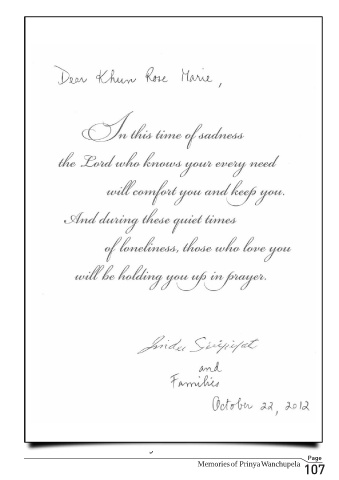 Dear Khun Rose Marie,
In this time of sadness
the Lord who knows your every need
will comfort you and keep you.
And during these quiet times
of loneliness, those who love you
will be holding you up in prayer.
and
Families
October 22, 2012
Memories of Prinya Wanchupela
Page
107